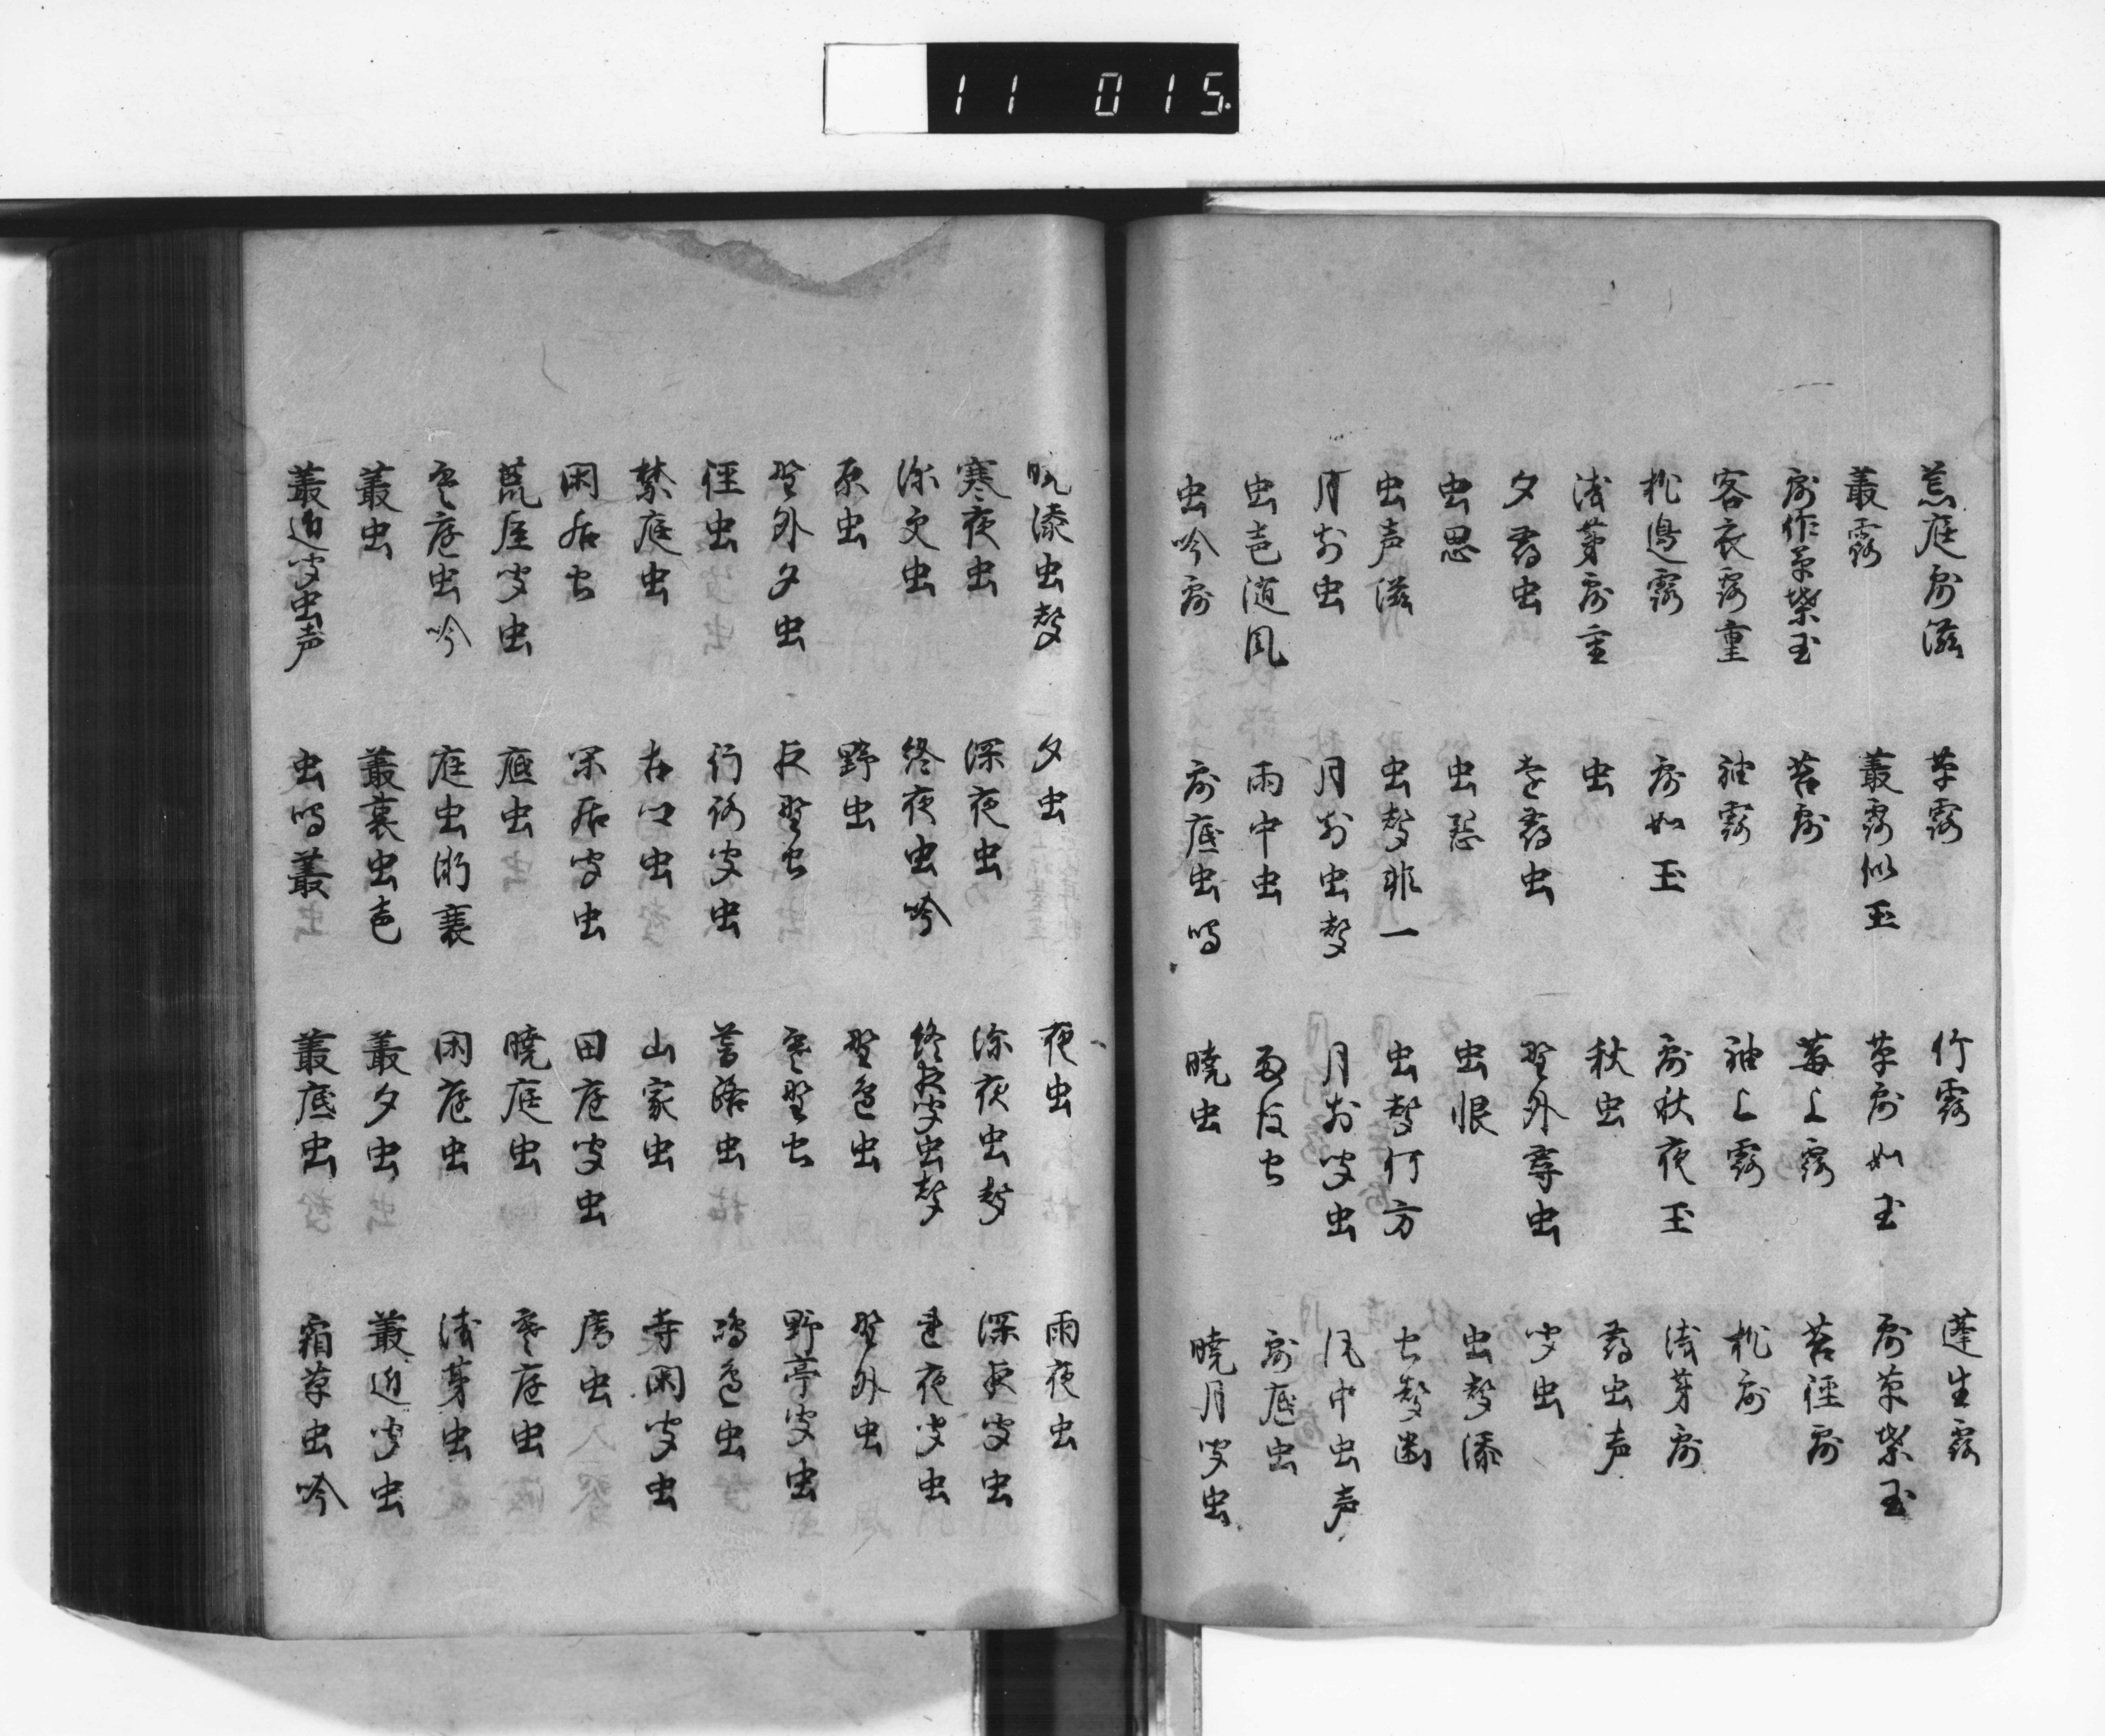 11 015
荒庭露滋 草露 竹露 蓬生露
叢露 叢露似玉 草露如玉 露草紫玉
露作草紫玉 苔露 苺上露 苔径露
客衣露重 袖露 袖上露 枕露
枕辺露 露如玉 露秋夜玉 浅茅露
浅茅露重 虫 秋虫 尋虫声
夕尋虫 遠尋虫 野外尋虫 聞虫
虫思 虫怨 虫恨 虫声添
虫声滋 虫声非一 虫声何方 虫声幽
月前虫 月前虫声 月前聞虫 風中虫声
虫声随風 雨中虫 雨后虫 露底虫
虫吟露 露底虫鳴 暁虫 暁月聞虫
暁添虫声 夕虫 夜虫 雨夜虫
寒夜虫 深夜虫 深夜虫声 深夜聞虫
深更虫 終夜虫吟 終夜聞虫声 連夜聞虫
原虫 野虫 野色虫 野外虫
野外夕虫 夜野虫 寒野虫 野亭聞虫
径虫 行路聞虫 旧路虫 鴻色虫
禁庭虫 古口虫 山家虫 寺閑聞虫
閑居虫 深居聞虫 田庭聞虫 虫
荒屋聞虫 庭虫 暁庭虫 寒庭虫
寒庭虫吟 庭虫漸衰 閑庭虫 浅茅虫
叢虫 叢裏虫声 叢夕虫 叢辺聞虫
叢辺聞虫声 虫鳴叢 叢底虫 宿草虫吟